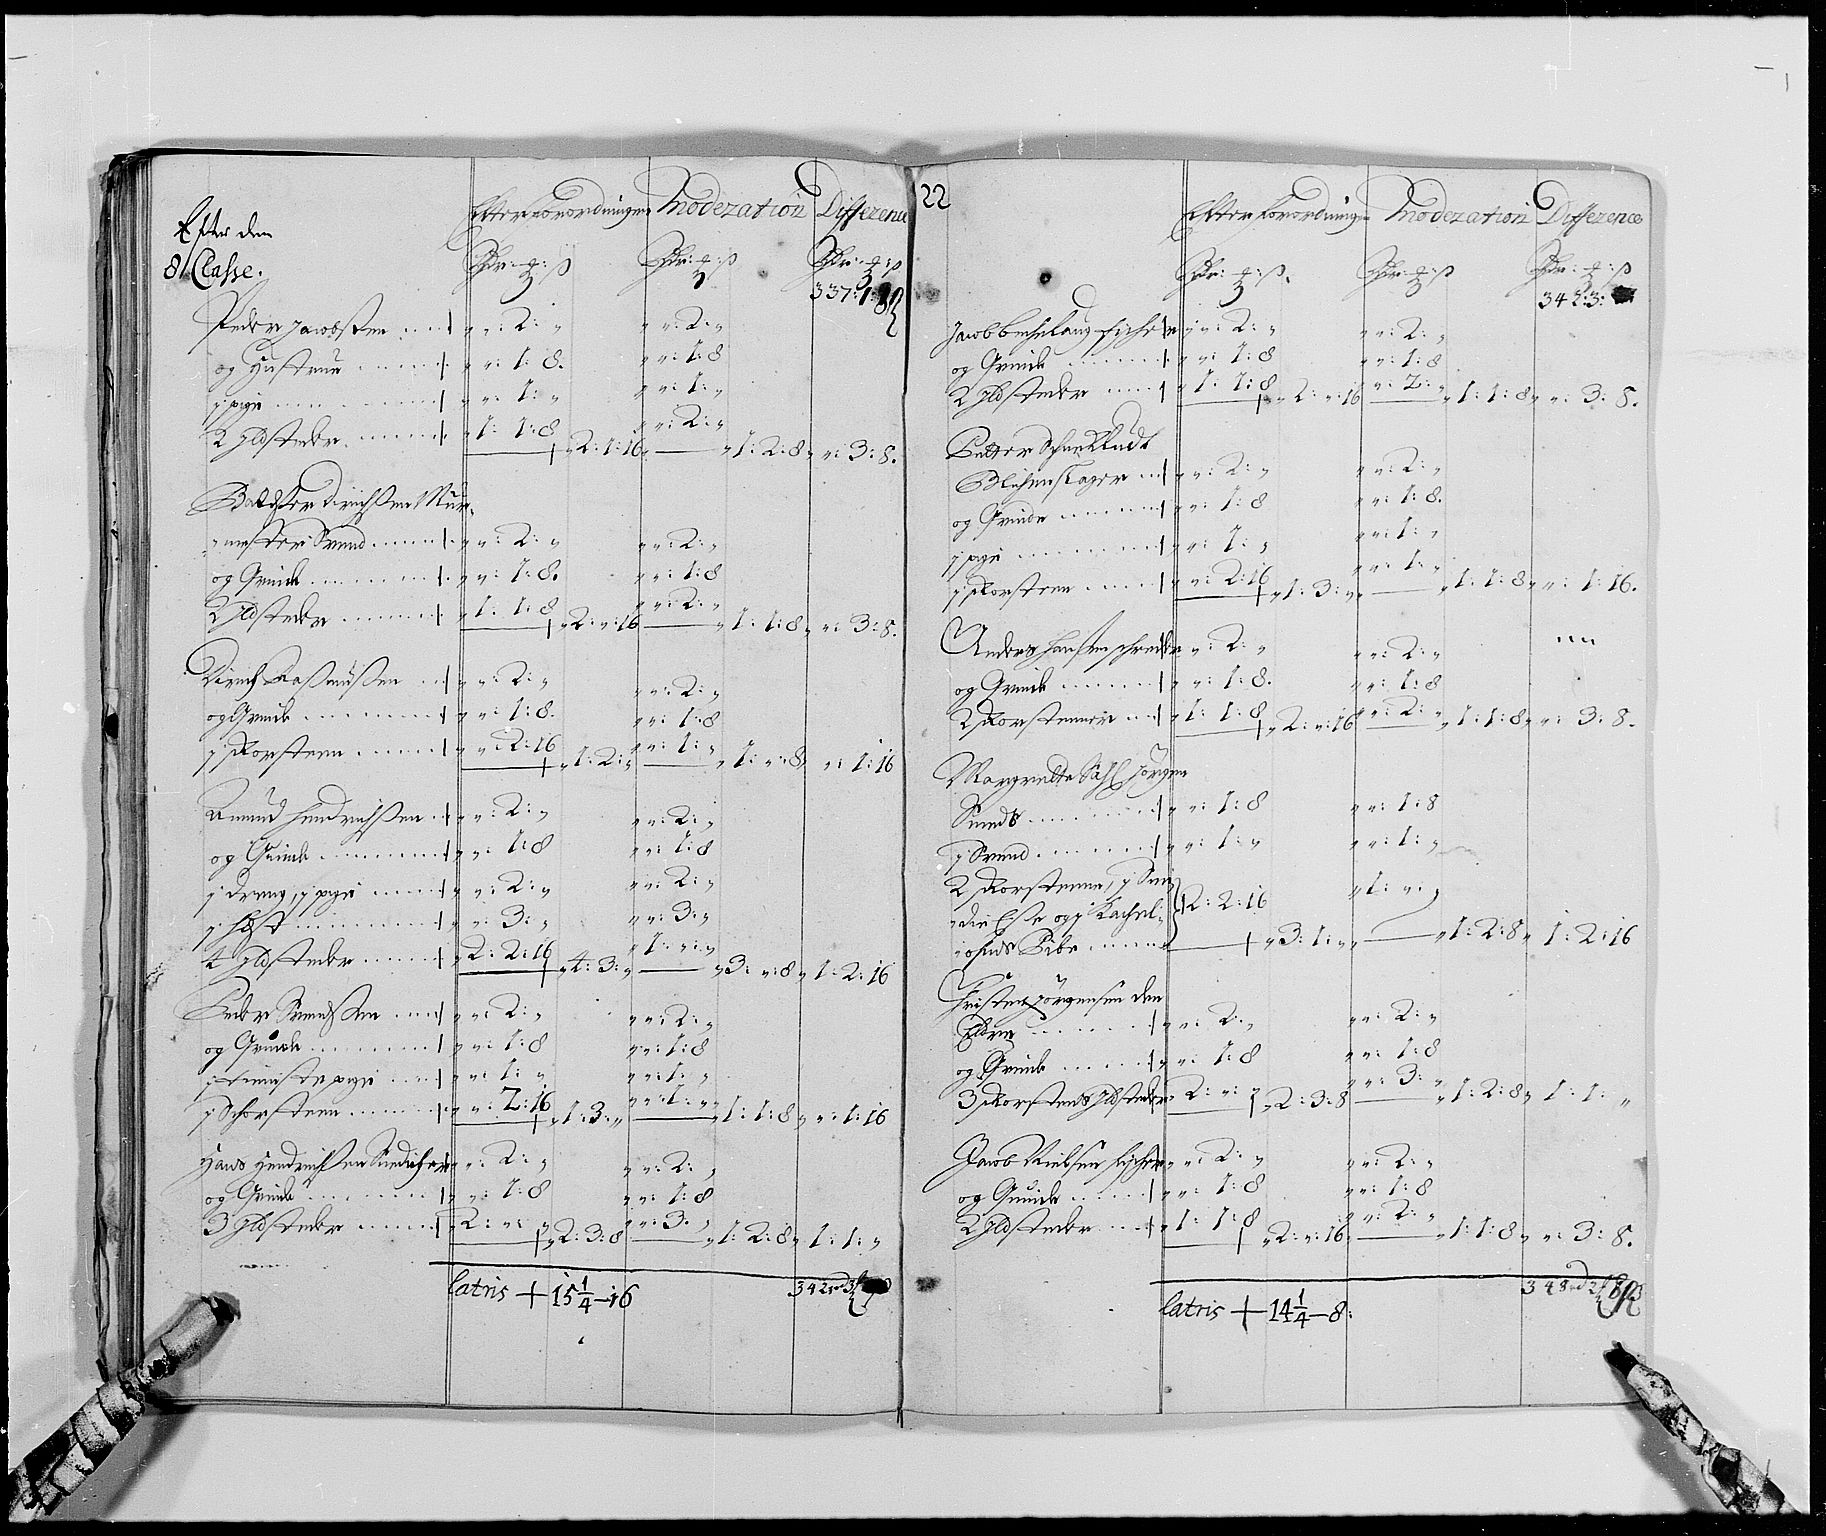 Efter den
8 Classe.
Efter forordningen Moderation Difference
337:1:8
Peder Jacobsen „ „: 2: „ „ „: 2: „
og Hustrue „ „: 1: 8. „ „: 1: 8
j pige „ „: 1: „ „ „: 1: „
2 Ildsteder „ 1: 1: 8 „ 2: 1: 16 „ „: 2: „ „ 1: 2: 8 „ „: 3: 8.
Mur-
mester Svend „ „: 2: „ „ „: 2: „
og Qvinde „ „: 1: 8. „ „: 1: 8
2 Ildsteder „ 1: 1: 8 „ 2: „: 16 „ „: 2: „ „ 1: 1: 8 „ „: 3: 8.
Dirich Rasmussen „ „: 2: „ „ „: 2: „
og Qvinde „ „: 1: 8. „ „: 1: 8
j Skorsteen „ „: 2: 16 „ 1: 2: „ „ „: 1: „ „ 1: „: 8 „ „: 1: 16
Amund Hendrichsen „ „: 2: „ „ „: 2: „
og Qvinde „ „: 1: 8 „ „: 1: 8
j dreng, j pige „ „: 2: „ „ „: 2: „
j Hest „ „: 3: „ „ „: 3: „
4 Ildsteder „ 2: 2: 16 „ 4: 3: „ „ 1: „: „ „ 3: „: 8 „ 1: 2: 16
Peder Svendsen „ „: 2: „ „ „: 2: „
og Qvinde „ „: 1: 8 „ „: 1: 8
j tieniste pige „ „: 1: „ „ „: 1: „
j Schorsteen „ „: 2: 16 „ 1: 3: „ „ „: 1: „ „ 1: 1: 8 „ „: 1: 16
Hans Hendrichsen „ „: 2: „ „ „: 2: „
og Qvinde „ „: 1: 8 „ „: 1: 8
3 Ildsteder „ 2: „: „ „ 2: 3: 8 „ „: 3: „ „ 1: 2: 8 „ 1: 1: „
latris + 15 1/4 - 16 342 rd 3
22
Efter forordningen Moderation Difference
342:3:
Jacob fischer „ „: 2: „ „ „: 2: „
og Qvinde „ „: 1: 8 „ „: 1: 8
2 Ildsteder „ 1: 1: 8 „ 2: „: 16 „ „: 2: „ „ 1: 1: 8 „ „: 3: 8.
Petter
Blichenslager „ „: 2: „ „ „: 2: „
og Qvinde „ „: 1: 8 „ „: 1: 8.
j pige „ „: 1: „ „ „: 1: „
j Skorsteen „ „: 2: 16 „ 1: 3: „ „ „: 1: „ „ 1: 1: 8 „ „: 1: 16.
Anders Hansen schreder „ „: 2: „ „ „: 2: „
og Qvinde „ „: 1: 8. „ „: 1: 8
2 Skorsteener „ 1: 1: 8 „ 2: „: 16 „ „: 2: „ „ 1: 1: 8 „ „: 3: 8.
Margrethe Sahl Jörgen
Smeds „ „: 1: 8 „ „: 1: 8
j Svend „ „: 1: „ „ „: 1: „
2 Skorsteene, j Smi-
die Esse og j Kachel- 2: 2: 16 „ 1: „: „
ofns Pibe „ 3: 1: „ „ 1: 2: 8 „ 1: 2: 16
Christen Jörgensen den
Eldre „ „: 2: „ „ „: 2: „
og Qvinde „ „: 1: 8 „ „: 1: 8
3 Skorsteens Ildsteder 2: „: „ „ 2: 3: 8 „ „: 3: „ „ 1: 2: 8 „ 1: 1: „
Jacob Nielsen fischer „ „: 2: „ „ „: 2: „
og Qvinde „ „: 1: 8 „ „: 1: 8
2 Ildsteder „ 1: 1: 8 „ 2: „: 16 „ „: 2: „ „ 1: 1: 8 „ „: 3: 8.
latris + 14 1/4 - 8: 348 rd 2